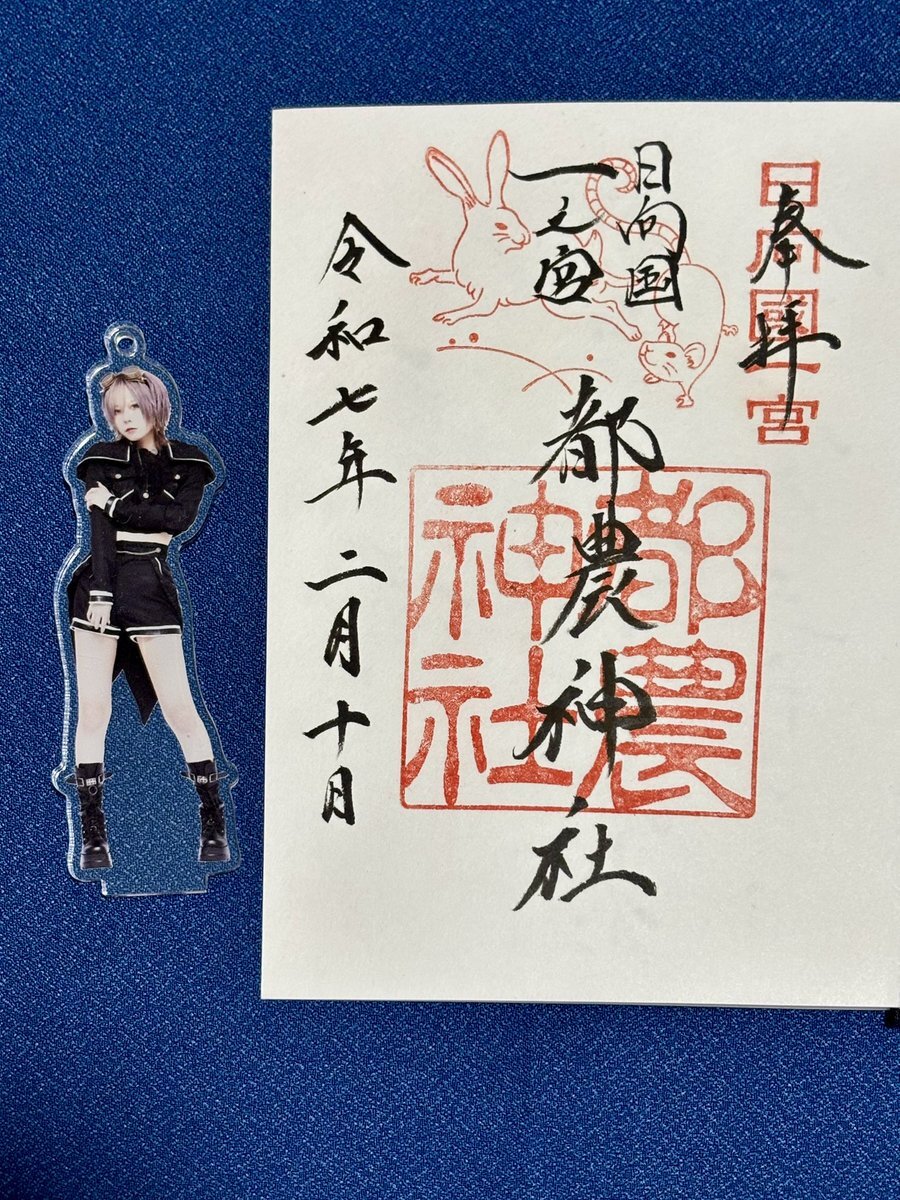 奉拝
日向國一宮
日向国
一之宮
都農神社
都農
神社
令和七年二月十日